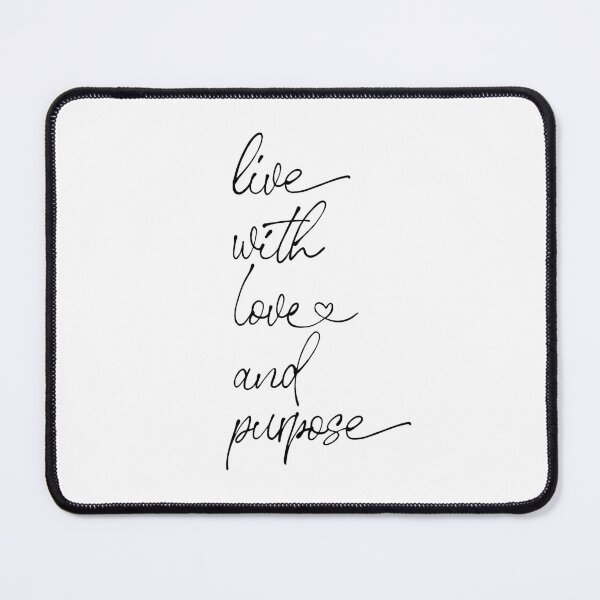 live
with
love
and
purpose